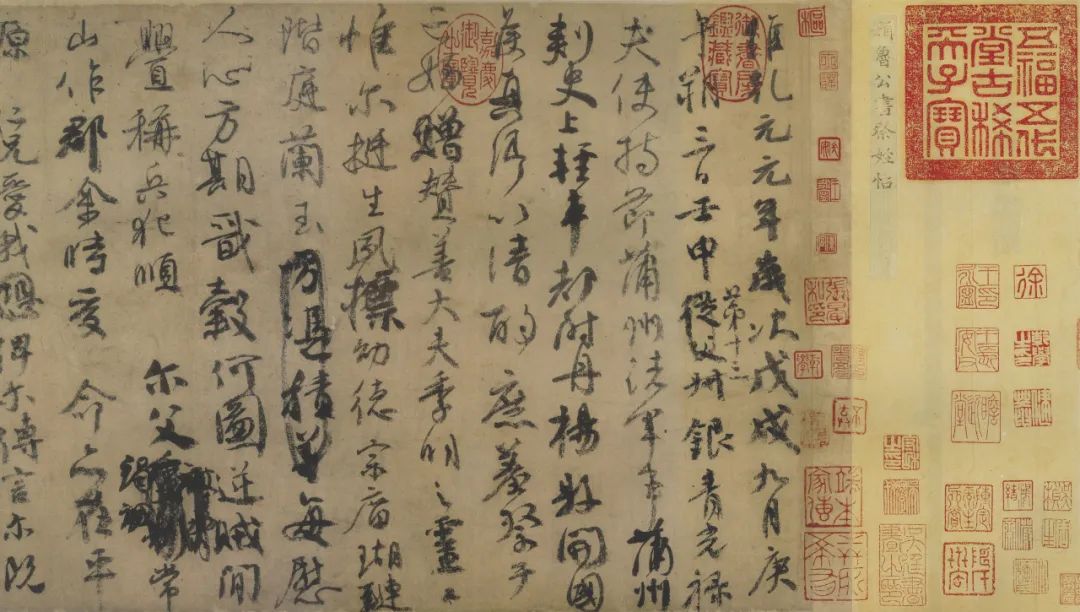 五福五代堂古稀天子寶
顏魯公書祭姪帖
維乾元元年歲次戊戌九月庚
午朔三日壬申第十三從父叔銀青光祿
夫使持節蒲州諸軍事蒲州
刺史上輕車都尉丹楊縣開國
侯真卿以清酌庶羞祭于
亡姪贈贊善大夫季明之靈曰
惟尔挺生夙標幼德宗廟瑚璉
階庭蘭玉方憑積善每慰
人心方期戩穀何圖逆賊間
舋稱兵犯順尔父竭誠常
山作郡余時受命亦在平
原仁兄愛我恐俾尔傳言尔既
御書房鑒藏寶
嘉慶御覽之寶
徐